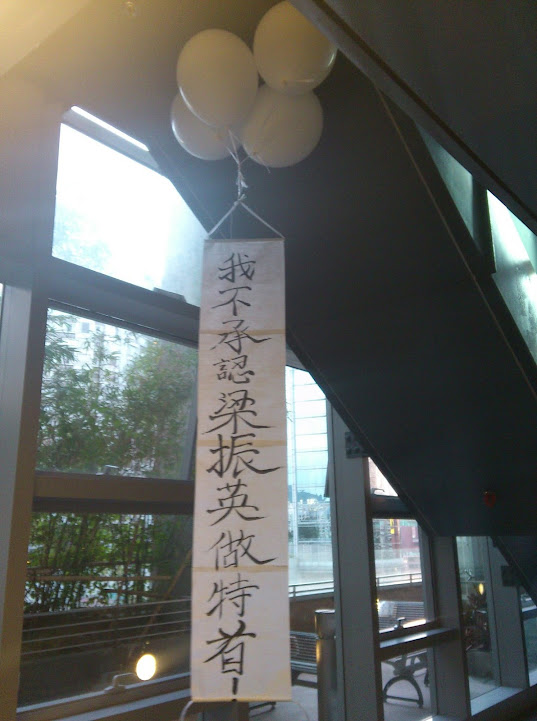 我不承認梁振英做特首！